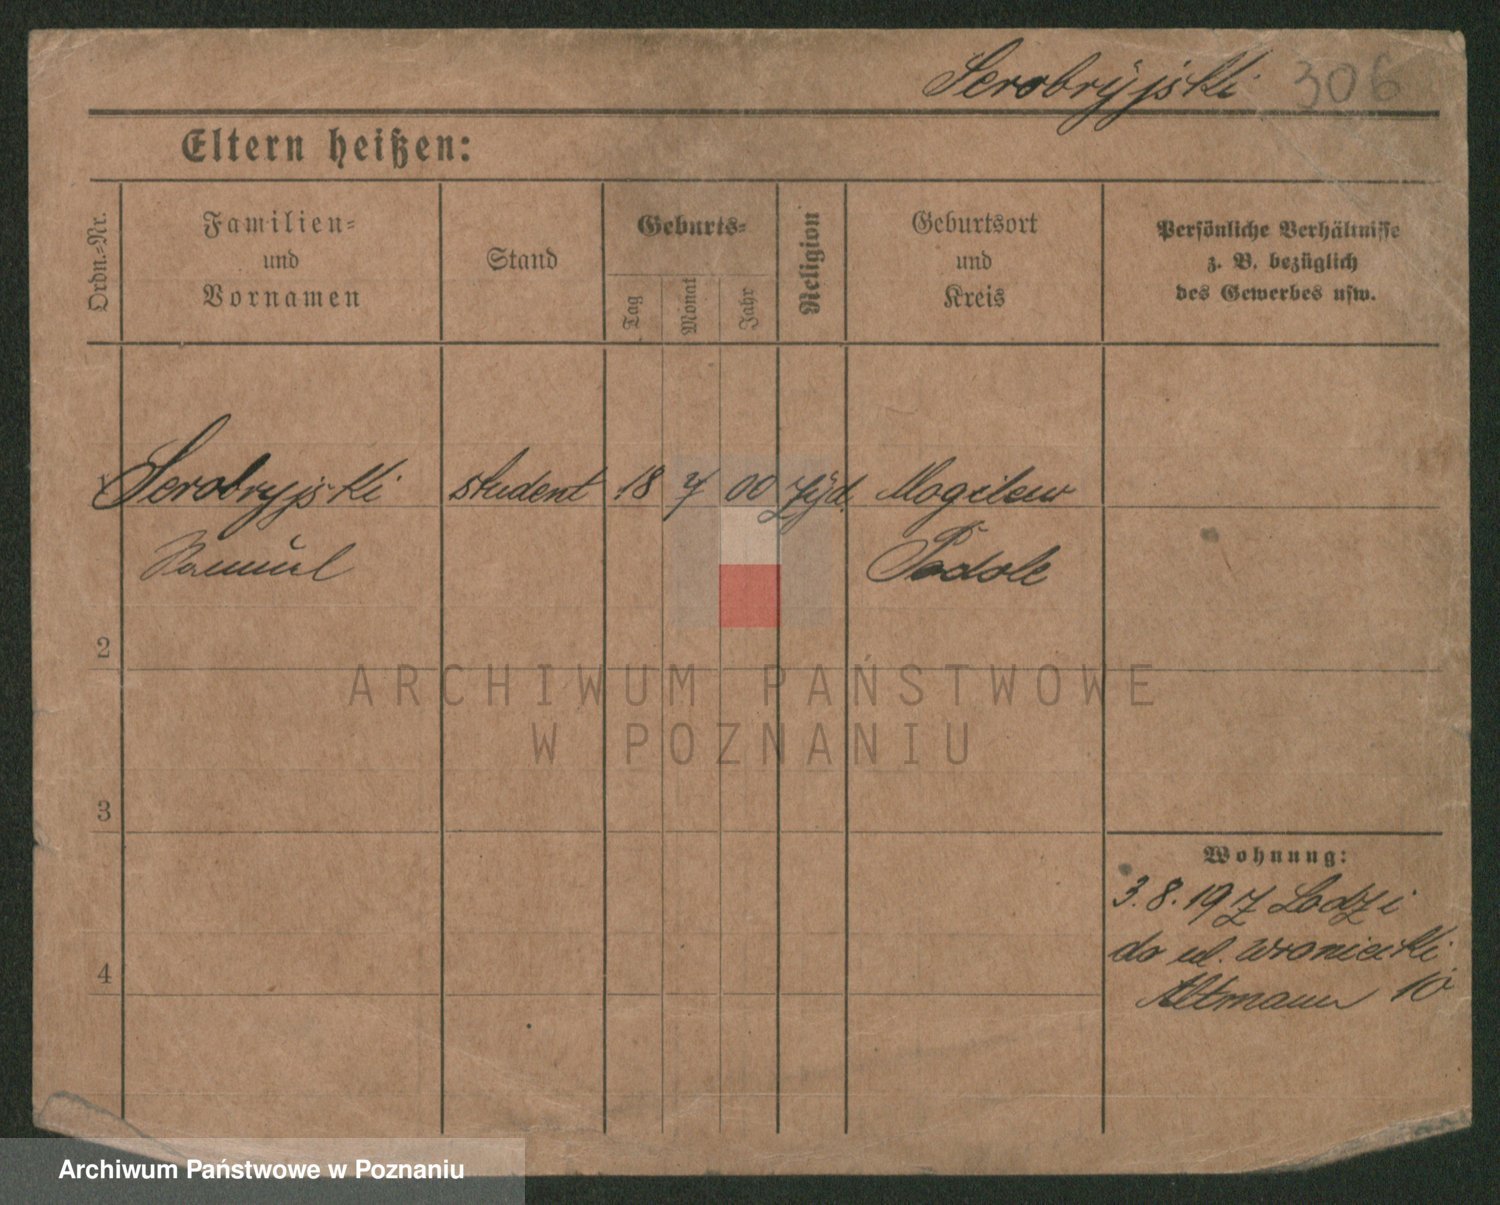 Serobryjski 306
Eltern heißen:
Ordn.=Nr.
Familien=
und
Vornamen
Stand
Geburts=
Tag
Monat
Jahr
Religion
Geburtsort
und
Kreis
Persönliche Verhältnisse
z. B. bezüglich
des Gewerbes usw.
Serobryjski student 18 00 żyd. Mogilew
Samuel Podole
2
ARCHIWUM PAŃSTWOWE
W POZNANIU
3
Wohnung:
3.8.19 z Lodzi
do ul. Wroniecki
4
Altmann 10
Archiwum Państwowe w Poznaniu